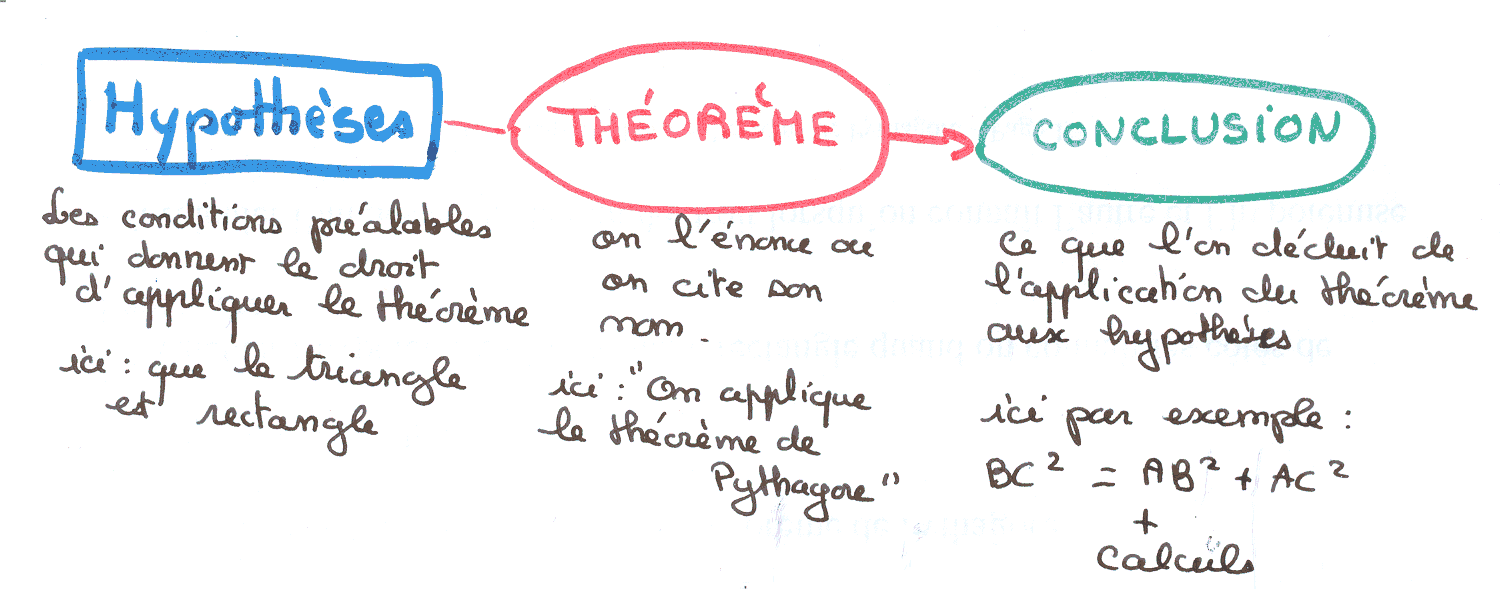 Hypothèses
Les conditions préalables
qui donnent le droit
d'appliquer le théorème
ici : que le triangle
est rectangle
THÉORÈME
on l'énonce ou
on cite son
nom
ici : "On applique
le théorème de
Pythagore"
CONCLUSION
ce que l'on déduit de
l'application du théorème
aux hypothèses
ici par exemple :
BC² = AB² + AC²
+
calculs